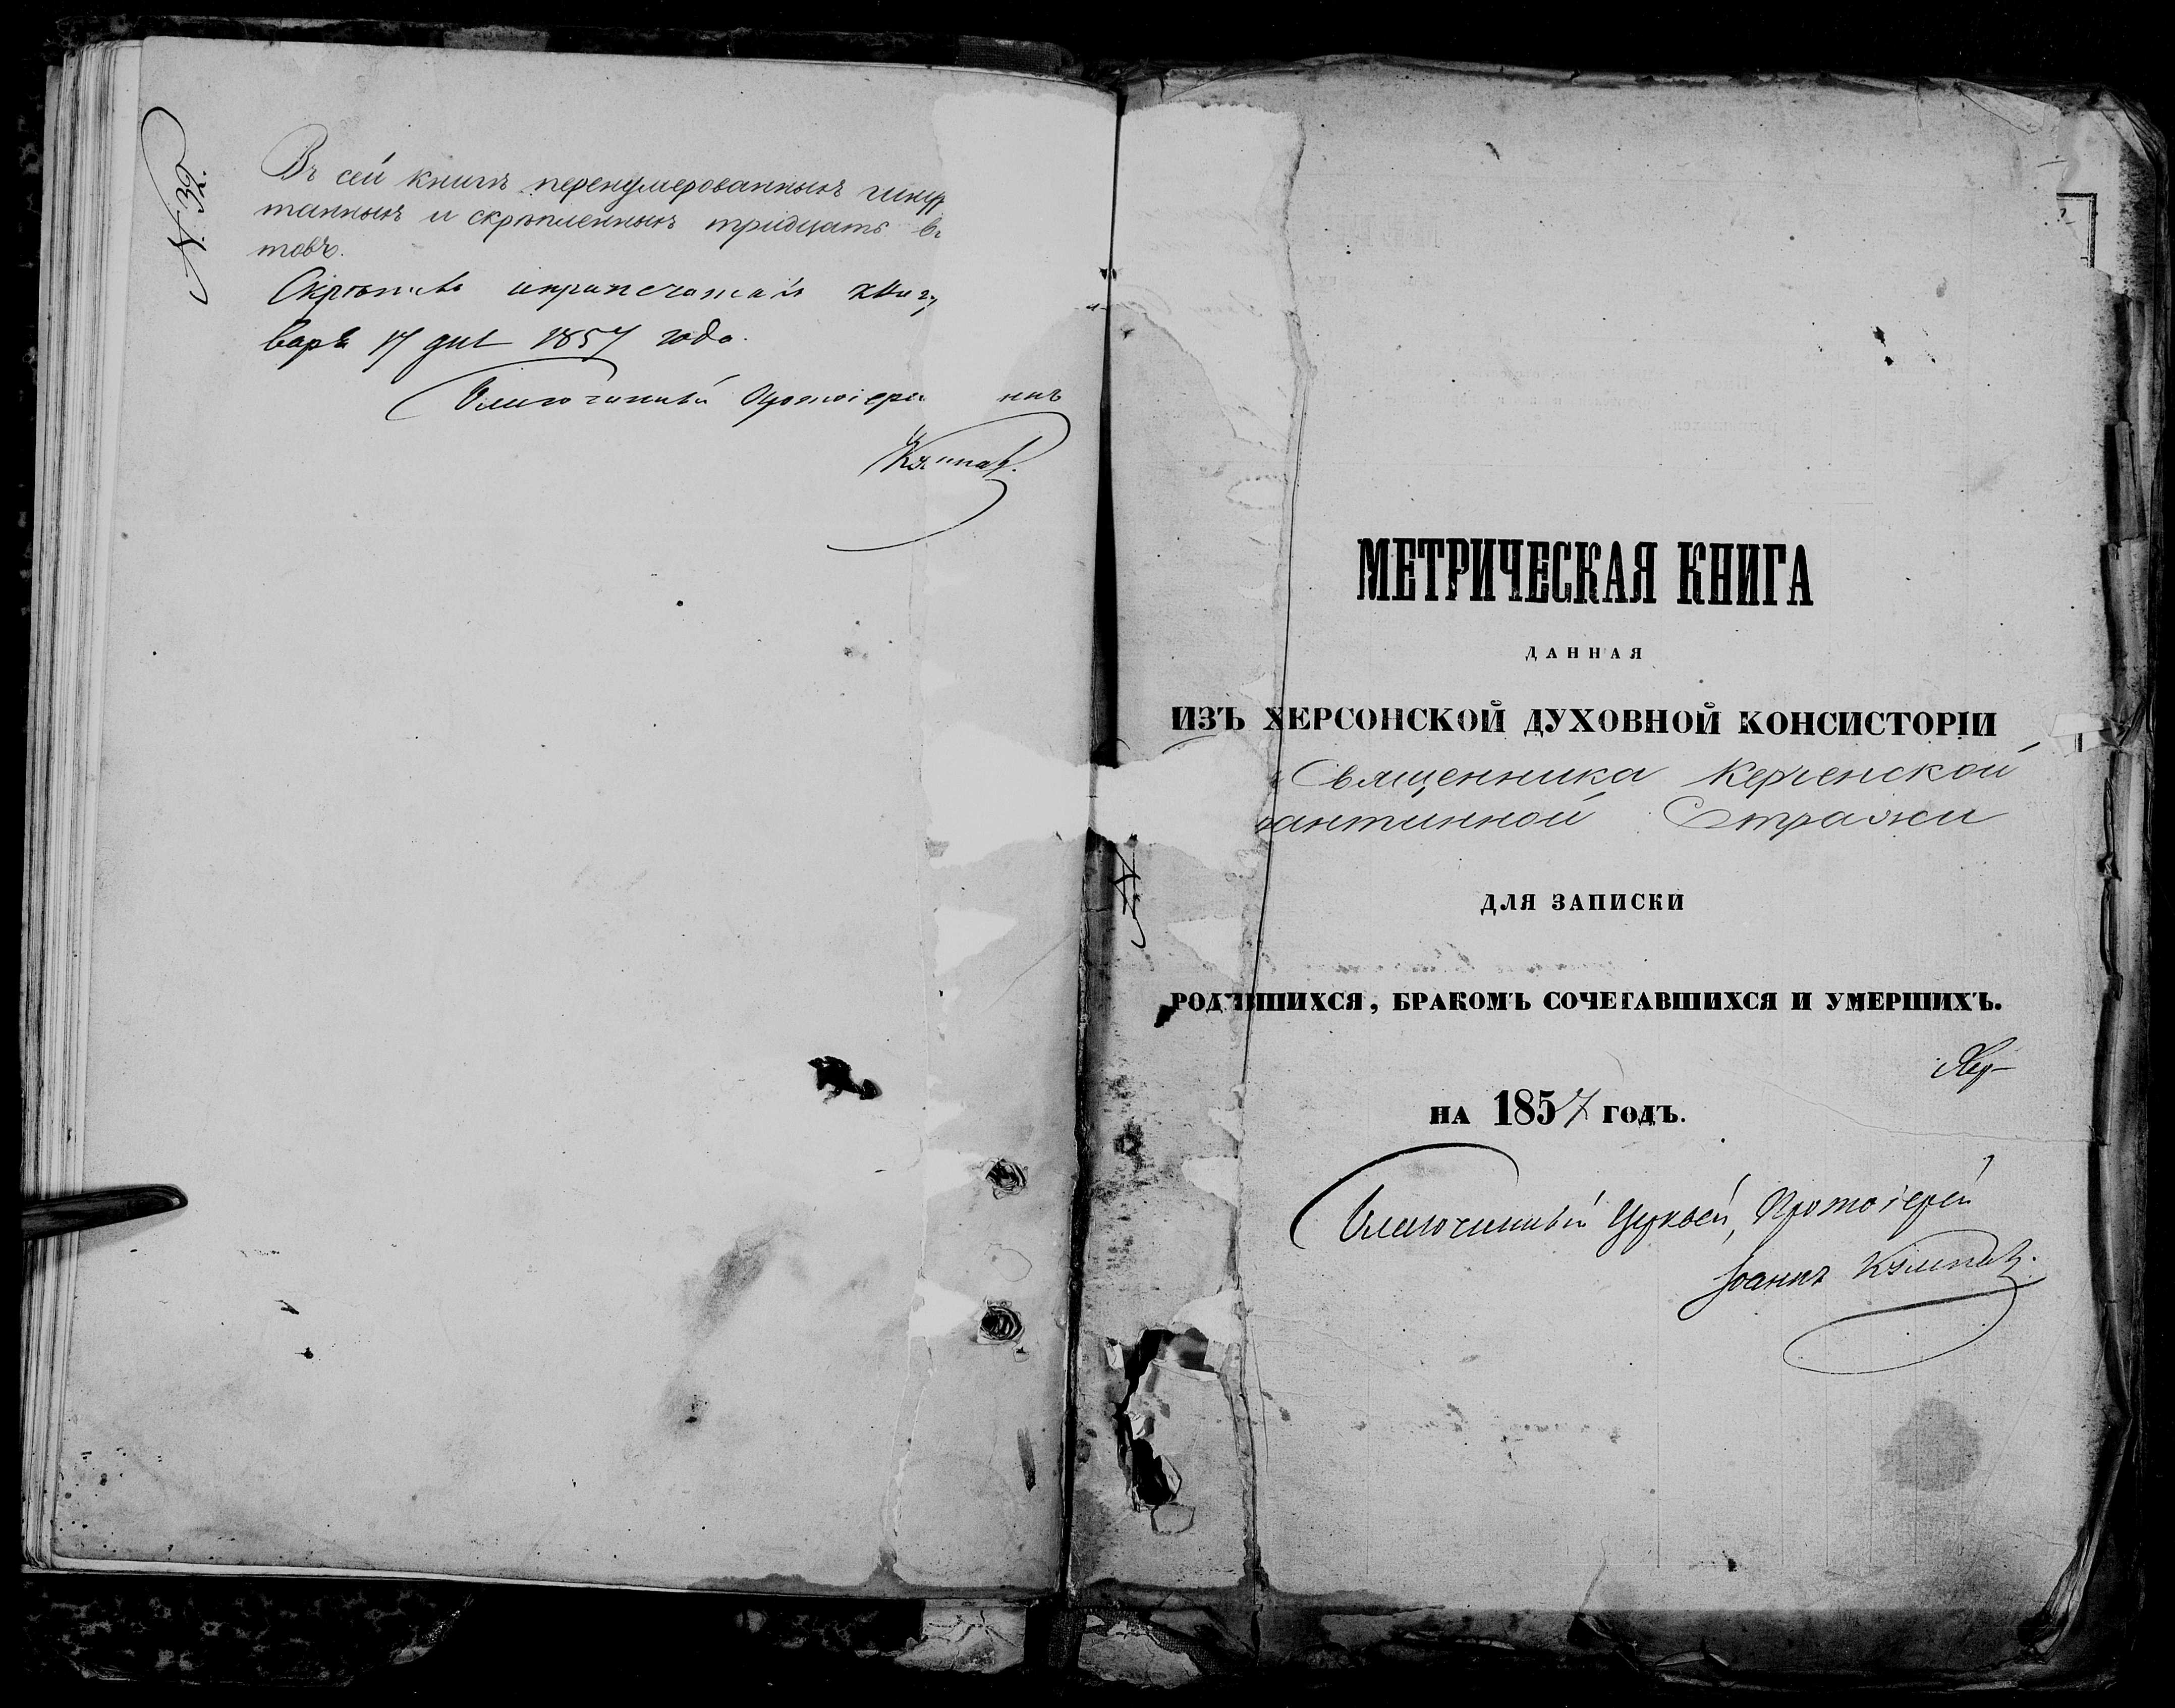 № 32.
Въ сей книгѣ перенумерованныхъ шнур
танныхъ и скрѣпленныхъ тридцать в
товъ.
Скрѣпивъ и припечаталъ книгу
варя 17 дня 1857 года.
Благочинный Протоіере ннъ
МЕТРИЧЕСКАЯ КНИГА
ДАННАЯ
ИЗЪ ХЕРСОНСКОЙ ДУХОВНОЙ КОНСИСТОРІИ
Священника Керченской
антинной Стражи
ДЛЯ ЗАПИСКИ
РОДИВШИХСЯ, БРАКОМЪ СОЧЕТАВШИХСЯ И УМЕРШИХЪ.
НА 1857 ГОДЪ.
Благочинный Церквей, Протоіерей
Іоаннъ